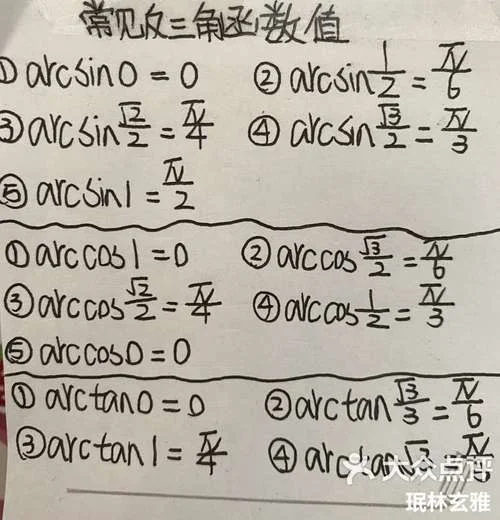 常见反三角函数值
① arcsin0=0 ② arcsin1/2=π/6
③ arcsin√2/2=π/4 ④ arcsin√3/2=π/3
⑤ arcsin1=π/2
① arccos1=0 ② arccos√3/2=π/6
③ arccos√2/2=π/4 ④ arccos1/2=π/3
⑤ arccos0=0
① arctan0=0 ② arctan√3/3=π/6
③ arctan1=π/4 ④ arctan√3=π/3
大众点评
珉林玄雅